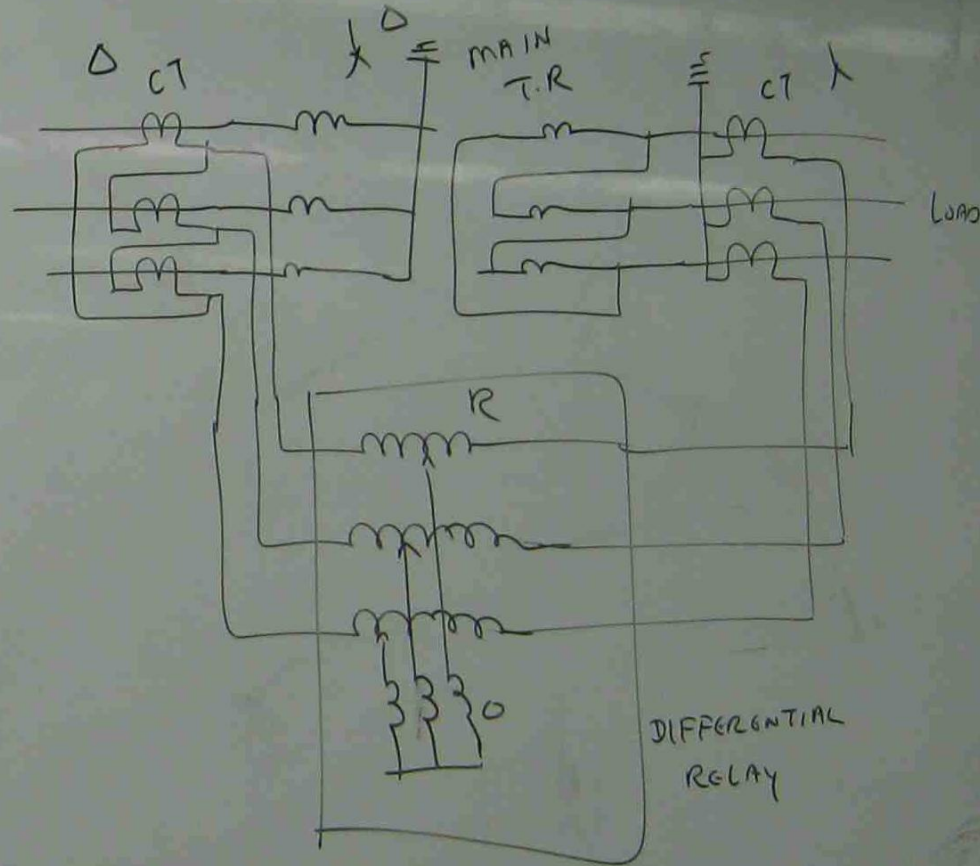 Δ CT
Y Δ
MAIN
T.R
CT Y
LOAD
R
O
DIFFERENTIAL
RELAY